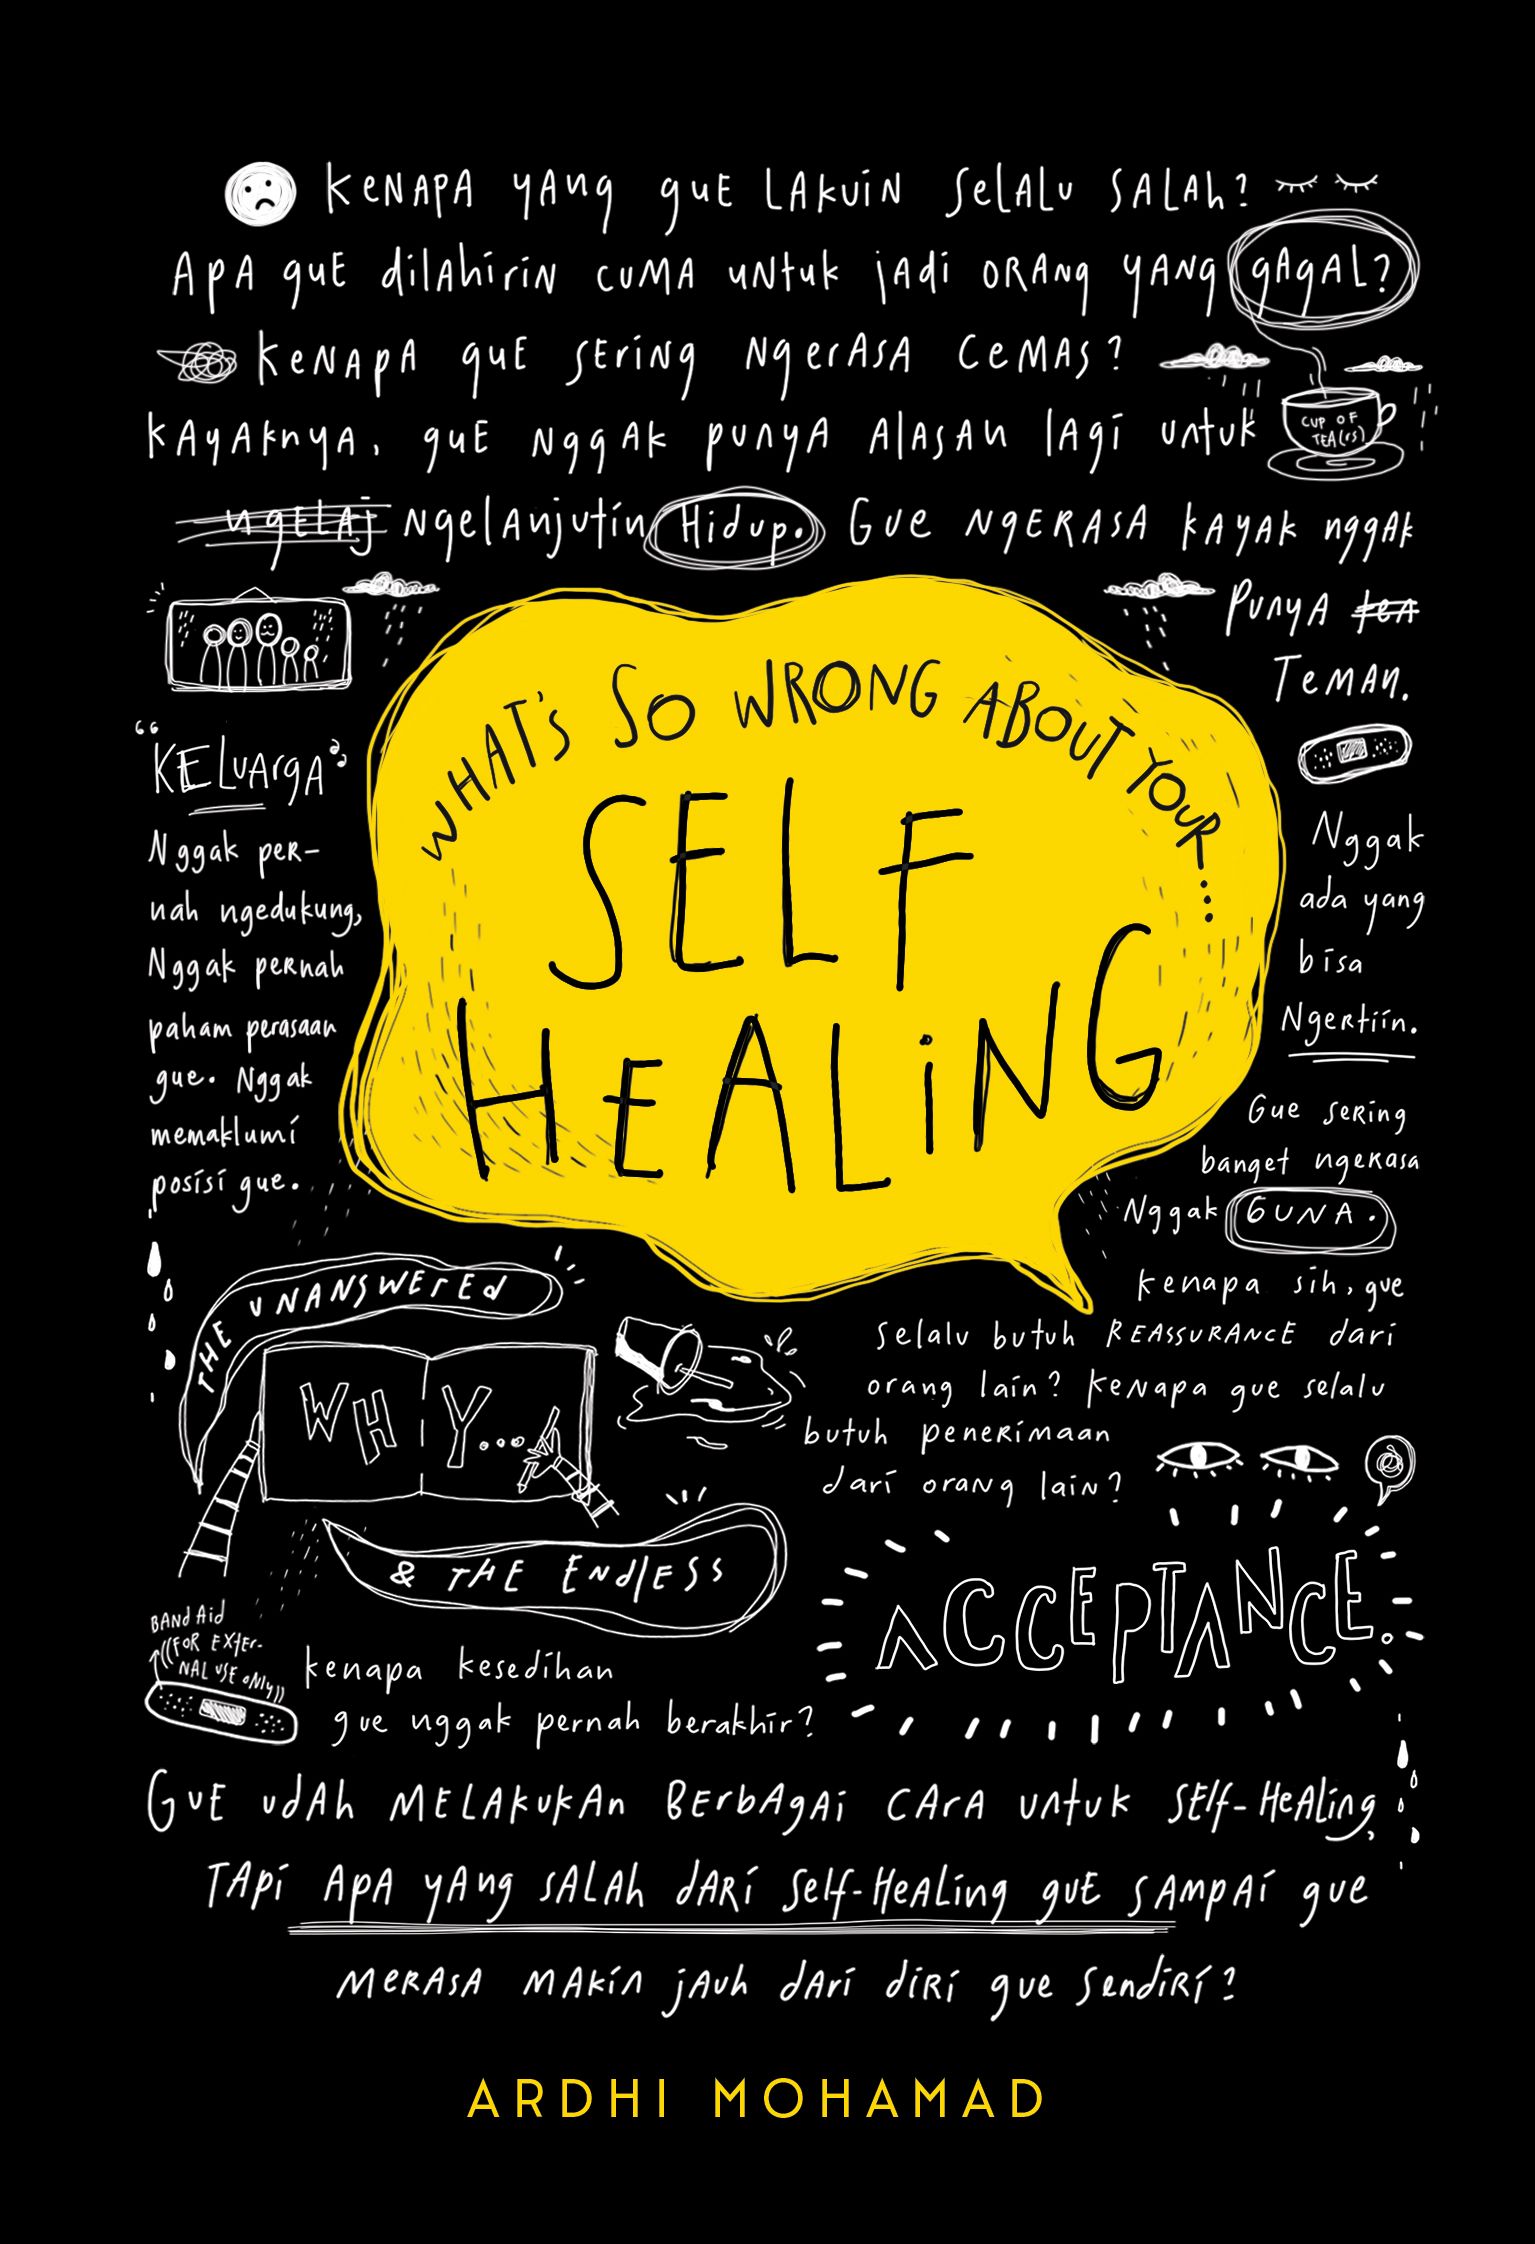 KENAPA YANG GUE LAKUIN SELALU SALAH?
APA GUE DILAHIRIN CUMA UNTUK JADI ORANG YANG GAGAL?
KENAPA GUE SERING NGERASA CEMAS?
KAYAKNYA, GUE NGGAK PUNYA ALASAN LAGI UNTUK
CUP OF
TEA(rs)
NGELAJ NGELANJUTIN HIDUP. GUE NGERASA KAYAK NGGAK
PUNYA TEA
TEMAN.
WHAT'S SO WRONG ABOUT YOUR...
SELF
HEALING
"KELUARGA"
Nggak per-
nah ngedukung,
Nggak pernah
paham perasaan
gue. Nggak
memaklumi
posisi gue.
Nggak
ada yang
bisa
Ngertiin.
Gue sering
banget ngerasa
Nggak GUNA.
kenapa sih, gue
selalu butuh REASSURANCE dari
orang lain? Kenapa gue selalu
butuh penerimaan
dari orang lain?
THE UNANSWERED
WHY...
& THE ENDLESS
ACCEPTANCE.
BAND AID
((FOR EXTER-
NAL USE ONLY))
kenapa kesedihan
gue nggak pernah berakhir?
GUE UDAH MELAKUKAN BERBAGAI CARA UNTUK SELF-HEALING,
TAPI APA YANG SALAH DARI SELF-HEALING GUE SAMPAI GUE
MERASA MAKIN JAUH DARI DIRI GUE SENDIRI?
ARDHI MOHAMAD